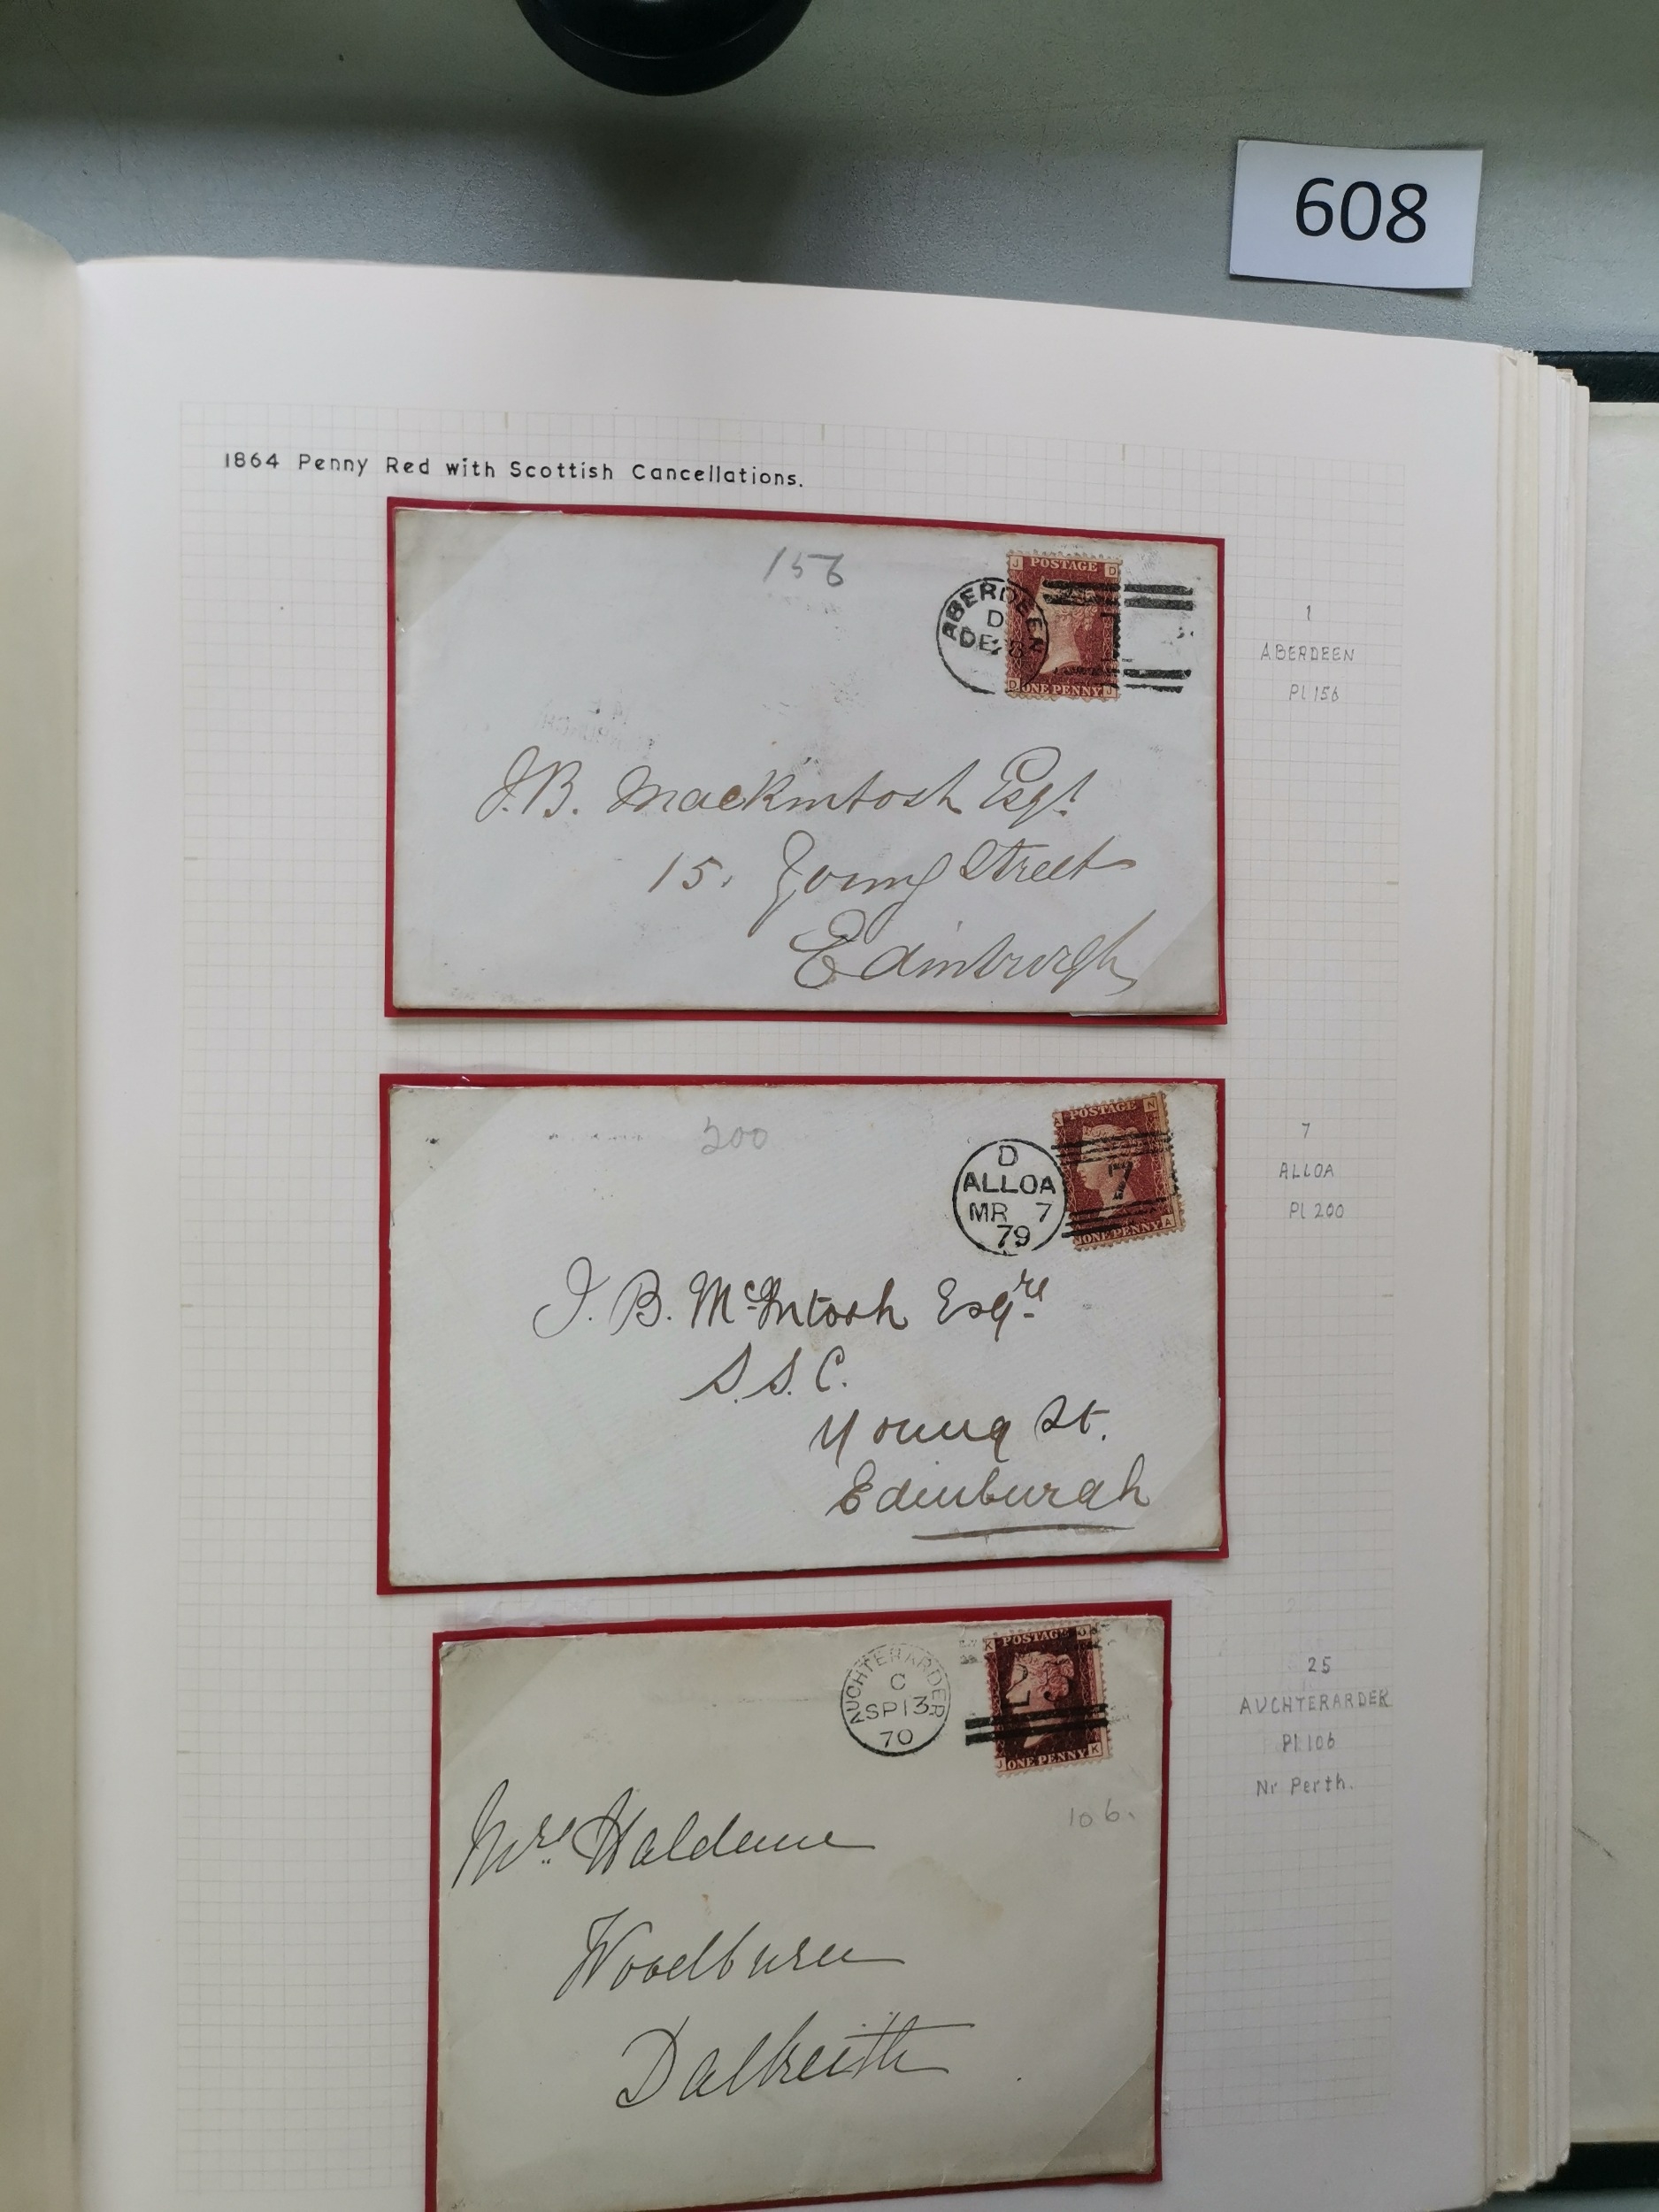 608
1864 Penny Red with Scottish Cancellations.
156
J POSTAGE D
ABERDEEN
D
DE 8
D ONE PENNY J
1
ABERDEEN
Pl 156
J.B. Mackintosh Esqr.
15. Young Street
Edinburgh
200
POSTAGE N
D
ALLOA
MR 7
79
7
ONE PENNY A
7
ALLOA
Pl 200
J. B. McIntosh Esqre
S.S.C.
Young St.
Edinburgh
K POSTAGE J
AUCHTERARDER
C
SP 13
70
25
J ONE PENNY K
25
AUCHTERARDER
Pl 106
Nr Perth.
106.
Mrs. Haldane
Woodburn
Dalkeith